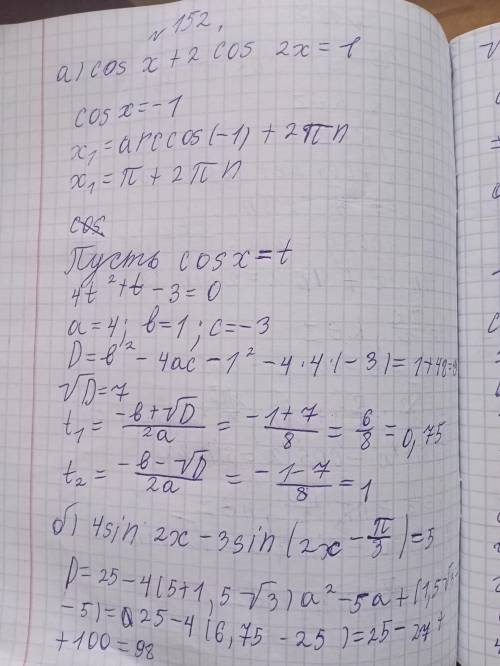 №152.
а) cos x + 2 cos 2x = 1
cos x = -1
x₁ = arccos(-1) + 2πn
x₁ = π + 2πn
cos
Пусть cos x = t
4t² + t - 3 = 0
a = 4; b = 1; c = -3
D = b² - 4ac - 1² - 4 · 4 · (-3) = 1 + 48 =
√D = 7
t₁ = (-b + √D)/2a = (-1 + 7)/8 = 6/8 = 0,75
t₂ = (-b - √D)/2a = (-1 - 7)/8 = 1
б) 4 sin 2x - 3 sin (2x - π/3) = 5
D = 25 - 4(5 + 1,5√3) a² - 5a + (1,5√
- 5) = 25 - 4 (6,75 - 25) = 25 - 27 +
+ 100 = 98